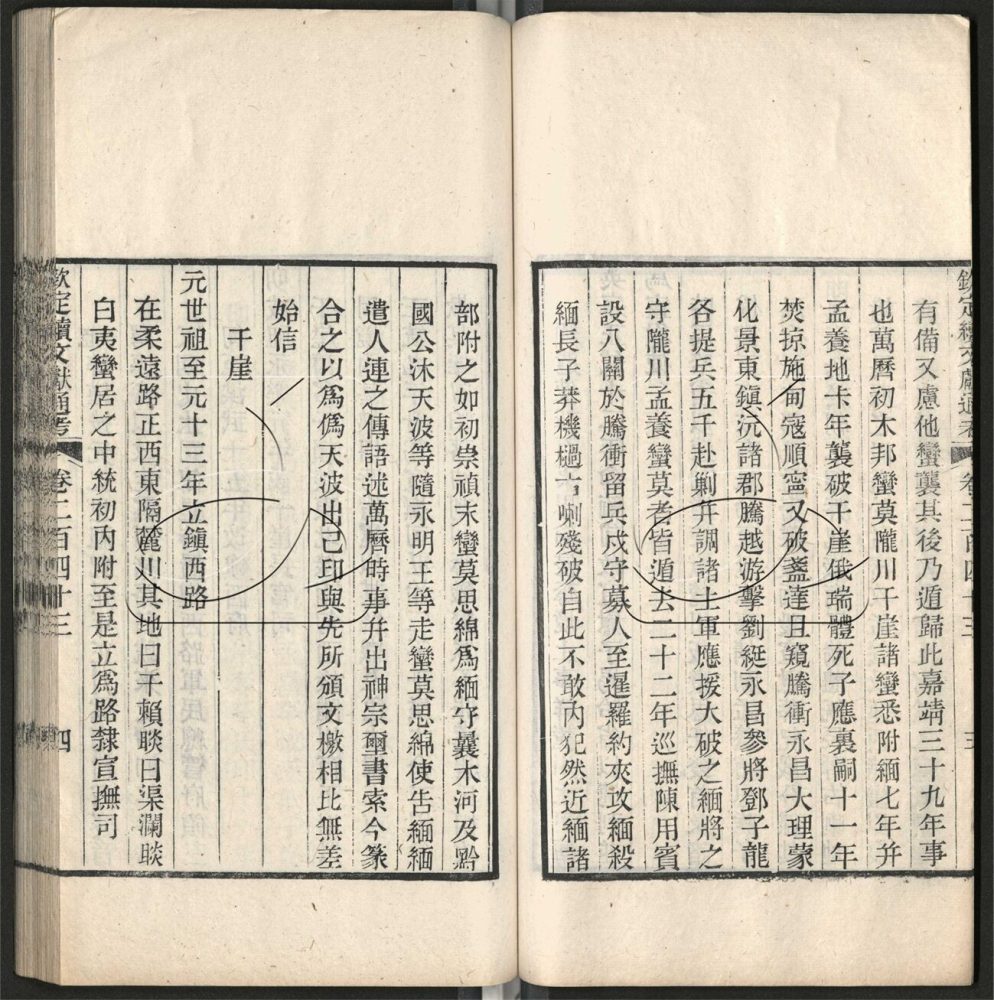 欽定續文獻通考 卷二百四十三 三
有備又慮他蠻襲其後乃遁歸此嘉靖三十九年事
也萬曆初木邦蠻莫隴川干崖諸蠻悉附緬七年并
孟養地十年襲破干崖俄瑞體死子應裏嗣十一年
焚掠施甸寇順寧又破盞達且窺騰衝永昌大理蒙
化景東鎮沅諸郡騰越游擊劉綎永昌參將鄧子龍
各提兵五千赴剿并調諸土軍應援大破之緬將之
守隴川孟養蠻莫者皆遁去二十二年巡撫陳用賓
設八關於騰衝留兵戍守募人至暹羅約夾攻緬殺
緬長子莽機檛古喇殘破自此不敢內犯然近緬諸
部附之如初崇禎末蠻莫思綿爲緬守曩木河及黔
國公沐天波等隨永明王等走蠻莫思綿使告緬緬
遣人連之傳語述萬曆時事并出神宗璽書索今篆
合之以爲僞天波出己印與先所頒文檄相比無差
始信
干崖
元世祖至元十三年立鎮西路
在柔遠路正西東隔麓川其地曰干賴睒曰渠瀾睒
白夷蠻居之中統初內附至是立爲路隸宣撫司
欽定續文獻通考 卷二百四十三 四